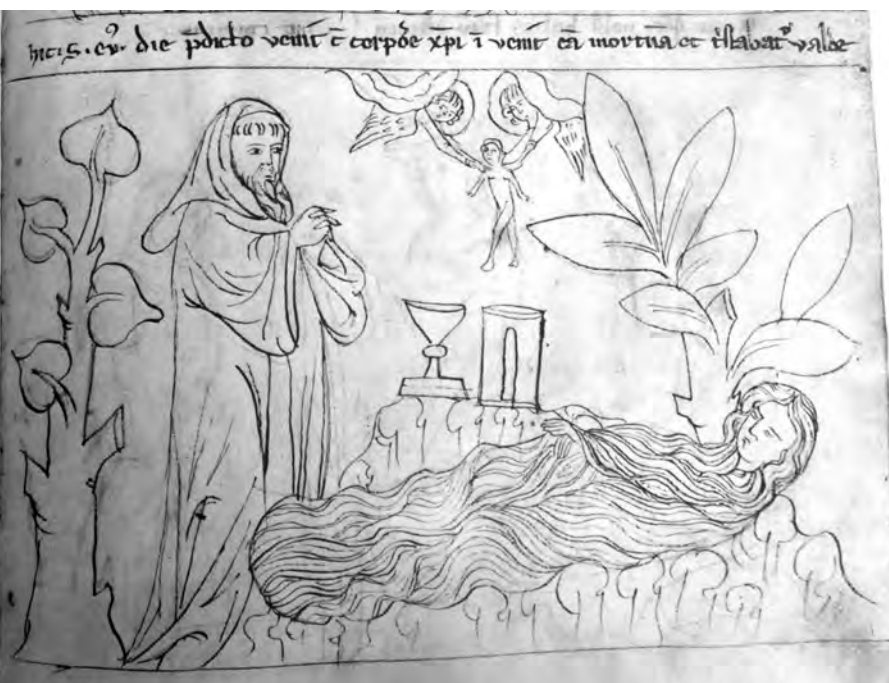 hic · S · ev⁹ · die p̄dicto venit c̄ corpōe xp̄i ī venit eā mortuā et t̄stabat᷒ valde